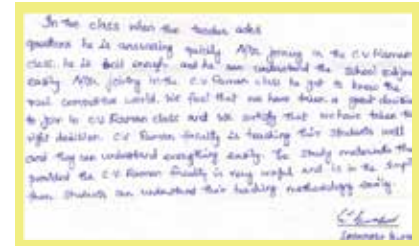 In the class when the teacher asks
questions he is answering quickly After joining in the C.V Raman
class. he is fast enough and he can understand the school subject
easily After joining in the C.V Raman class he got to know the
real competitive world. We feel that we have taken a great decision
to join in C.V Raman class and we satisfy that we have taken the
right decision. C.V Raman faculty is teaching their students well
and they can understand everything easily. The study materials that
provided the C.V Raman faculty is very useful and is in the
than students can understand their teaching methodology easily